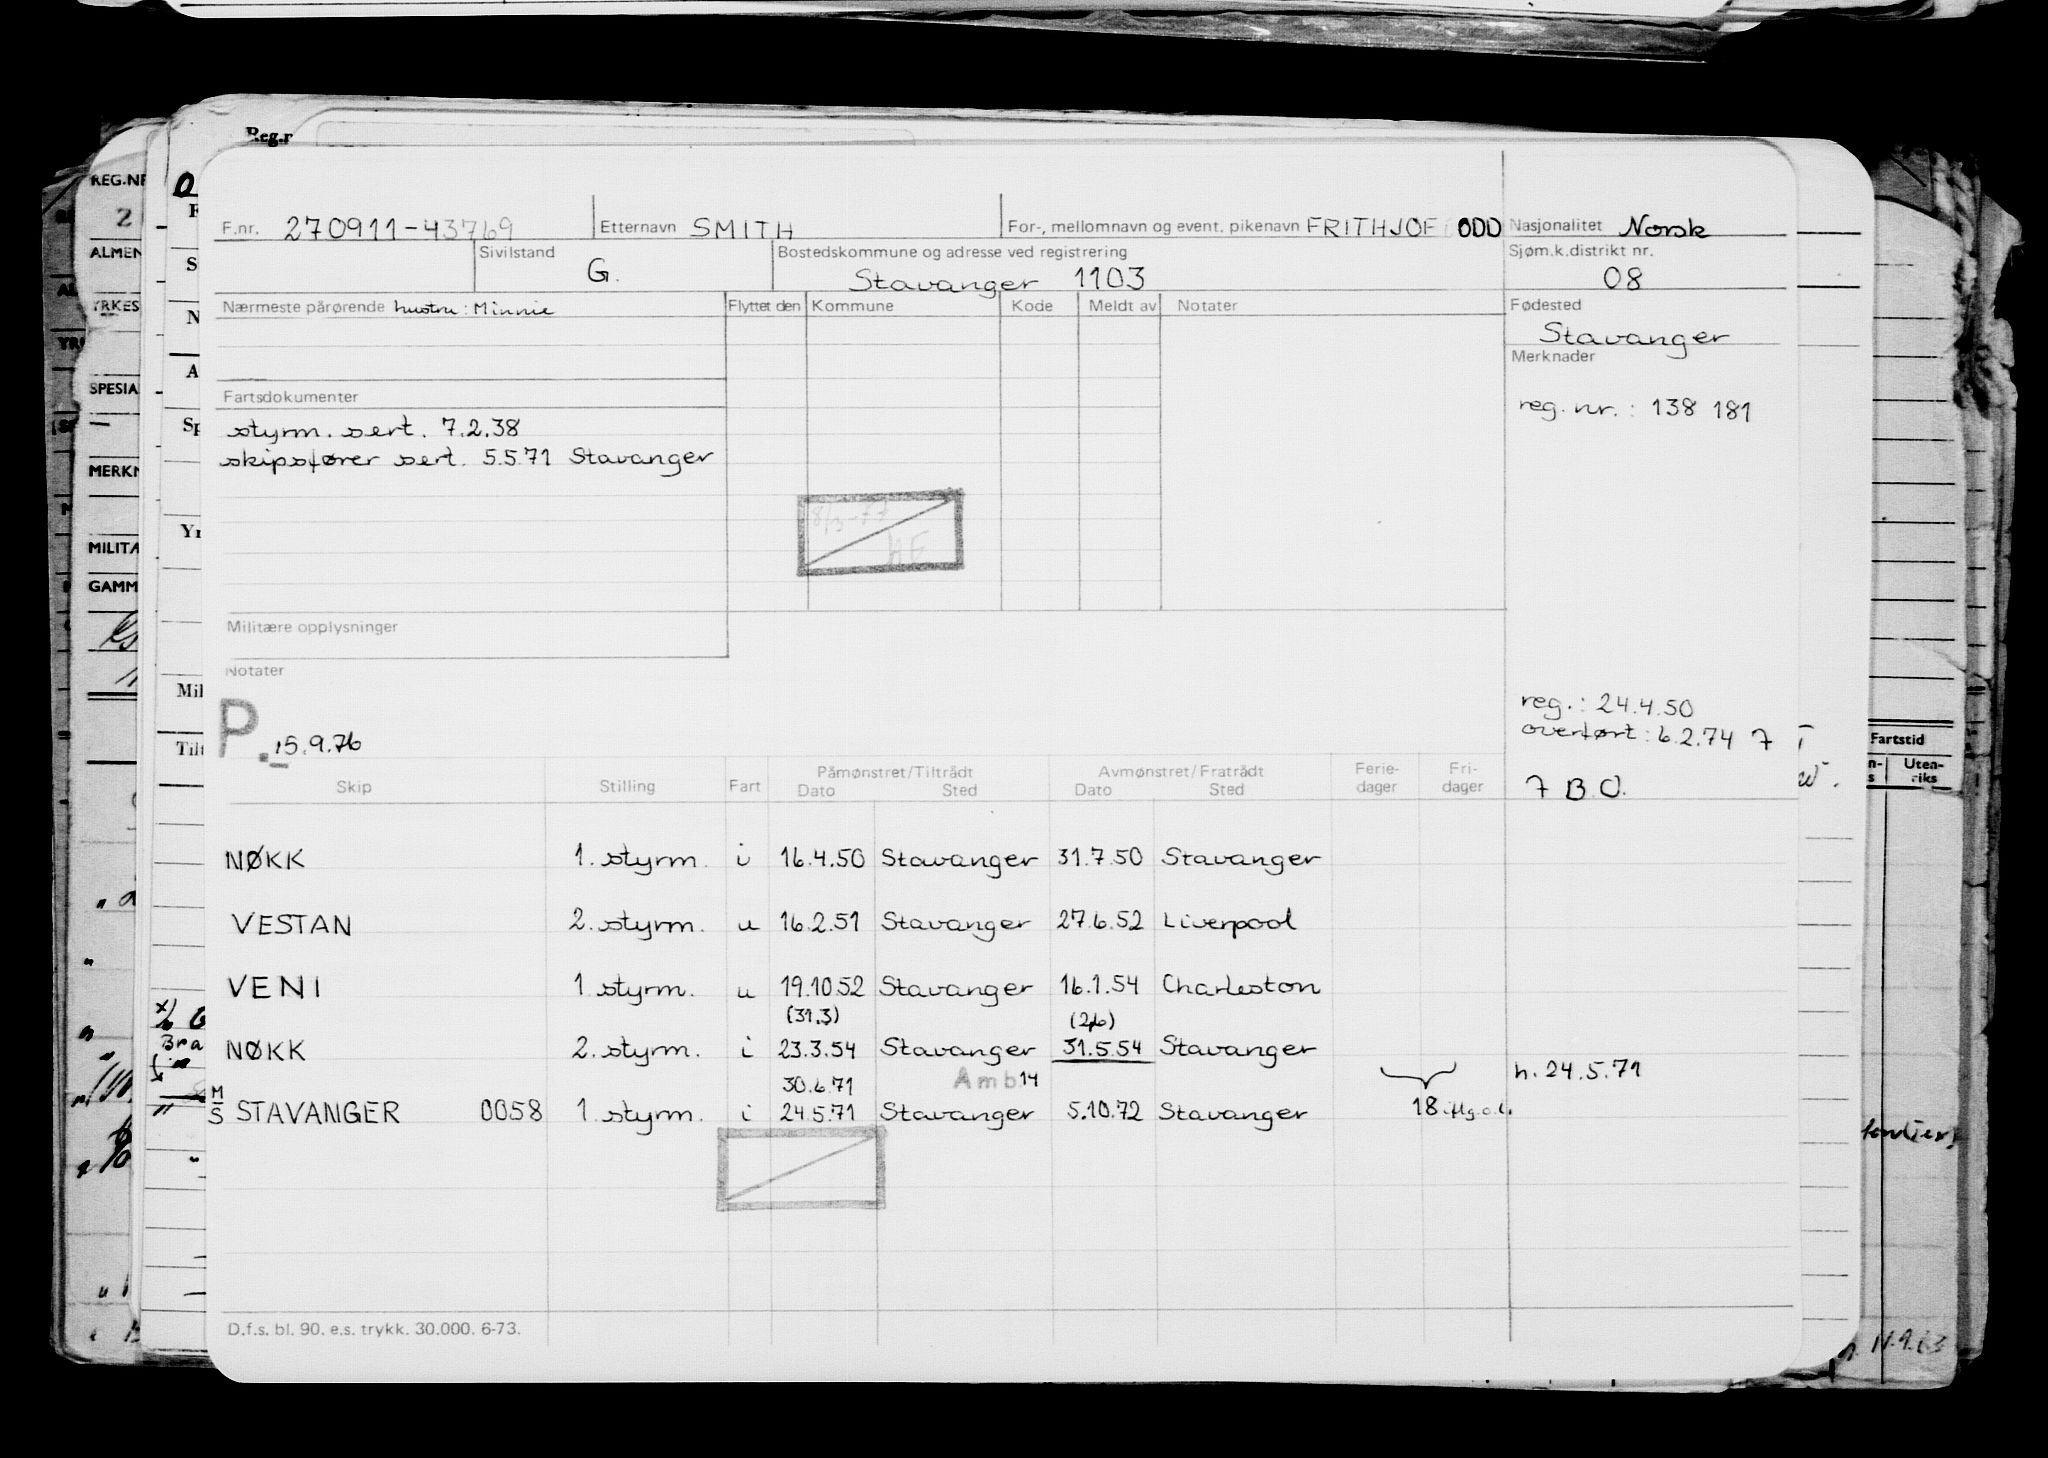 F.nr. 270911-43769 Etternavn SMITH For-, mellomnavn og event. pikenavn FRITHJOF ODD Nasjonalitet Norsk
Sivilstand G. Bostedskommune og adresse ved registrering Stavanger 1103 Sjøm.k.distrikt nr. 08
Nærmeste pårørende hustru: Minnie Flyttet den Kommune Kode Meldt av Notater Fødested
Stavanger
Merknader
Fartsdokumenter
reg. nr.: 138 181
styrm. sert. 7.2.38
skipsfører sert. 5.5.71 Stavanger
8/3-77
Militære opplysninger
Notater
P. 15.9.76
reg.: 24.4.50
overført: 6.2.74 7
7 B.O.
Skip Stilling Fart Påmønstret/Tiltrådt Dato Sted Avmønstret/Fratrådt Dato Sted Ferie-dager Fri-dager
NØKK 1. styrm. i 16.4.50 Stavanger 31.7.50 Stavanger
VESTAN 2. styrm. u 16.2.51 Stavanger 27.6.52 Liverpool
VENI 1. styrm. u 19.10.52 Stavanger 16.1.54 Charleston
(31.3) (2/6)
NØKK 2. styrm. i 23.3.54 Stavanger 31.5.54 Stavanger
30.6.71 Amb 14 h. 24.5.71
M/S STAVANGER 0058 1. styrm. i 24.5.71 Stavanger 5.10.72 Stavanger 18
D.f.s. bl. 90. e.s. trykk. 30.000. 6-73.
Reg.n
REG.NR
ALMEN
YRKES
SPESIA
MERKN
MILITÆ
GAMM
Mil
Tilt
Fartstid
Uten-riks
11.9.63